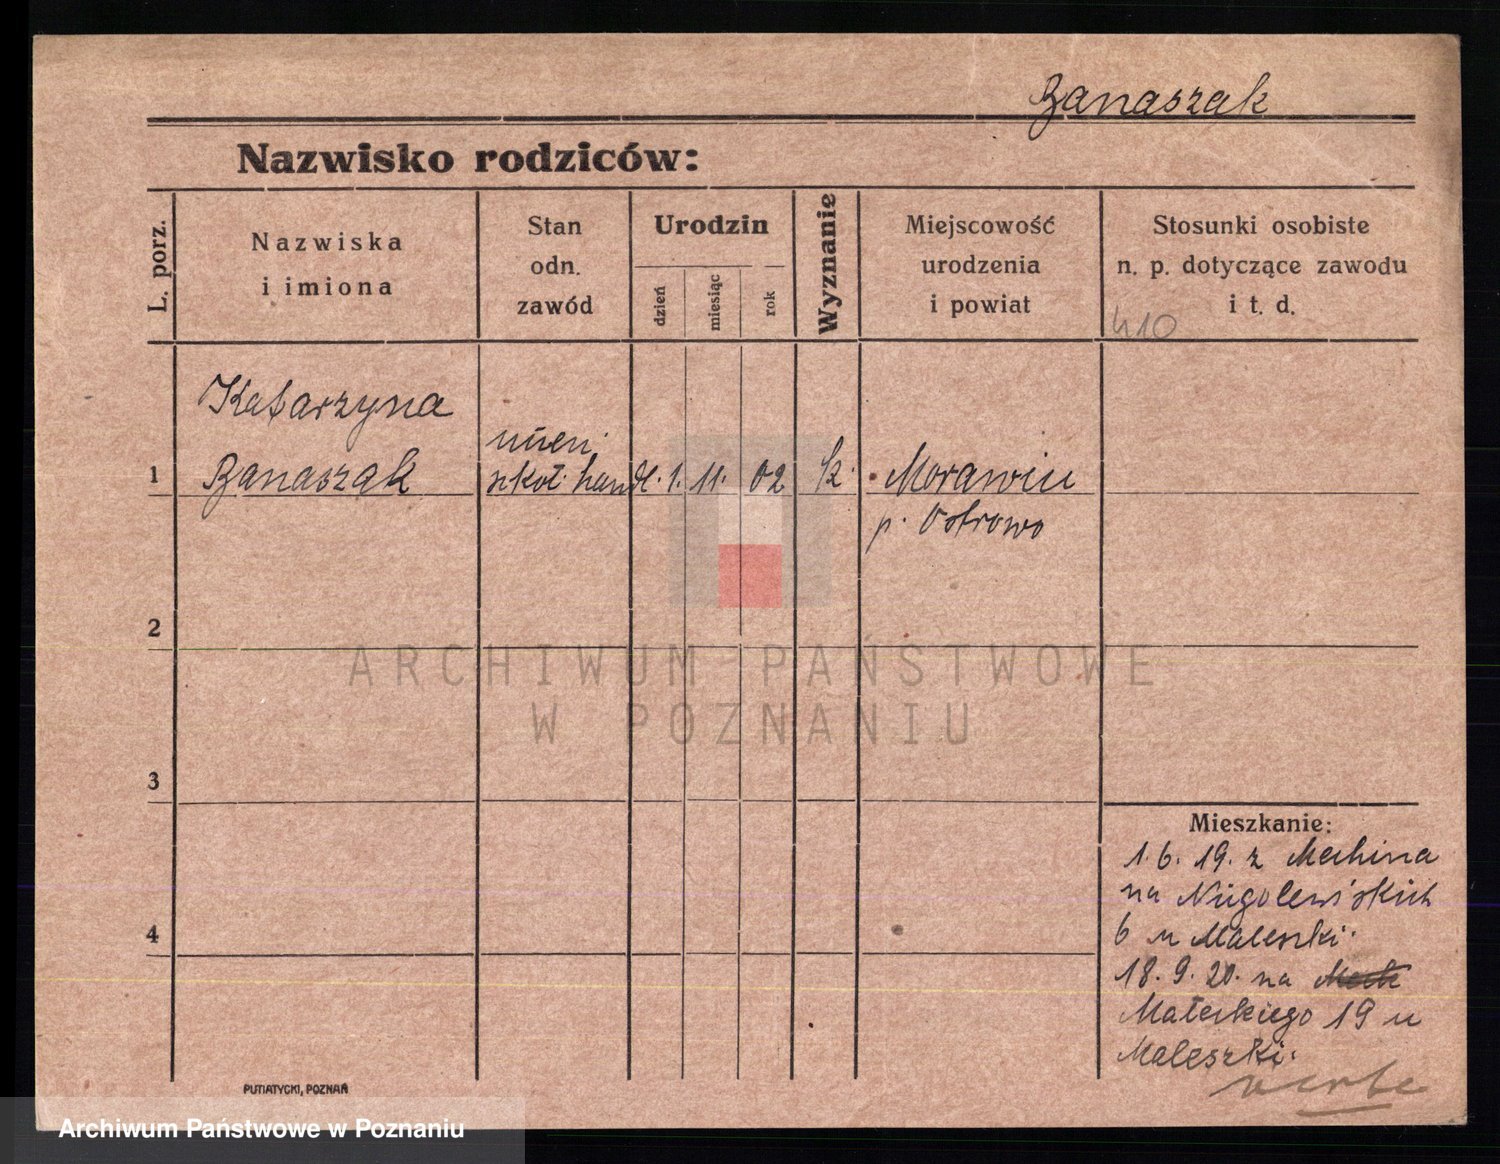 Banaszak
Nazwisko rodziców:
L. porz.
Nazwiska
i imiona
Stan
odn.
zawód
Urodzin
dzień
miesiąc
rok
Wyznanie
Miejscowość
urodzenia
i powiat
Stosunki osobiste
n. p. dotyczące zawodu
i t. d.
410
Katarzyna
1 Banaszak
szkoł. handl. 1. 11. 02 k. Morawin
p. Ostrowo
2
3
4
Mieszkanie:
1. 6. 19. z
na
6 u Maleszki.
18. 9. 20. na
Małeckiego 19 u
Maleszki.
PUTIATYCKI, POZNAŃ
ARCHIWUM PAŃSTWOWE
W POZNANIU
Archiwum Państwowe w Poznaniu